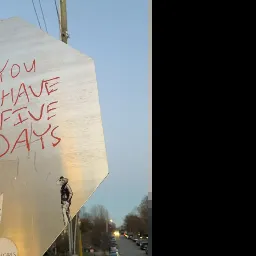 YOU
HAVE
FIVE
DAYS